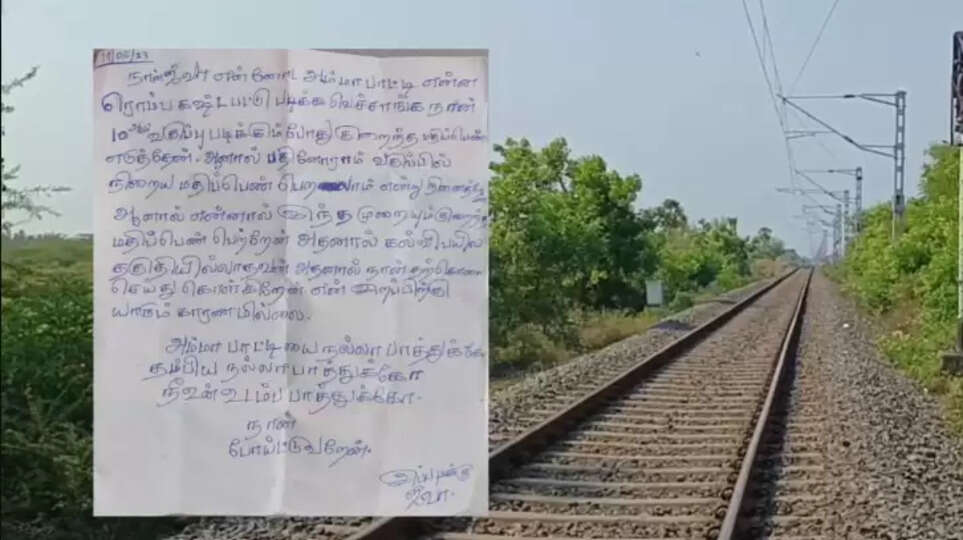 11/05/23
நான் ஜீவா என்னோட அம்மா பாட்டி என்ன
ரொம்ப கஷ்டபட்டு படிக்க வெச்சாங்க நான்
10 வகுப்பு படிக்கும்போது குறைந்த மதிப்பெண்
எடுத்தேன். ஆனால் பதினோராம் வகுப்பில்
நிறைய மதிப்பெண் பெறலாம் என்று
ஆனால் என்னால் இந்த முறையும்
மதிப்பெண் பெற்றேன் அதனால் கல்வி
தகுதியில்லாதவன் அதனால் நான் தற்கொலை
செய்து கொள்கிறேன் என்
யாரும் காரணமில்லை.
அம்மா பாட்டியை நல்லா பாத்துக்கோ
தம்பிய நல்லா பாத்துக்கோ
நீ உன் உடம்ப பாத்துக்கோ.
நான்
போய்ட்டு வறேன்.
இப்படிக்கு
ஜீவா.